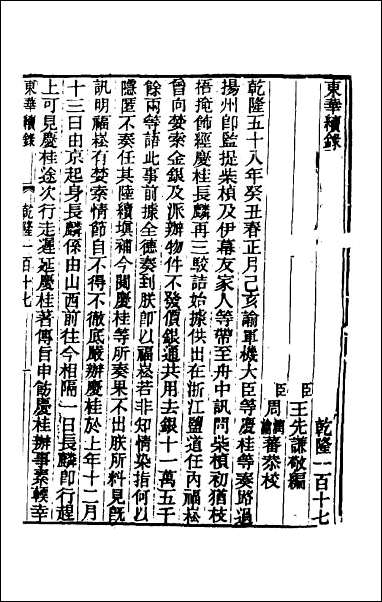 東華續錄
乾隆一百十七
臣王先謙敬編
臣周潤蕃恭校
乾隆五十八年癸丑春正月己亥諭軍機大臣等慶桂等奏路過
揚州卽監提柴楨及伊幕友家人等帶至舟中訊問柴楨初猶枝
梧掩飾經慶桂長麟再三駮詰始據供出在浙江鹽道任內福崧
曾向婪索金銀及派辦物件不發價銀通共用去銀十一萬五千
餘兩等語此事前據全德奏到朕卽以福崧若非知情染指何以
隱匿不奏任其陸續塡補今閱慶桂等所奏果不出朕所料見旣
訊明福崧有婪索情節自不得不徹底嚴辦慶桂於上年十二月
十三日由京起身長麟係由山西前往今相隔一日長麟卽行趕
上可見慶桂途次行走遲延慶桂著傳旨申飭慶桂辦事素輭幸
東華續錄
乾隆一百十七
一